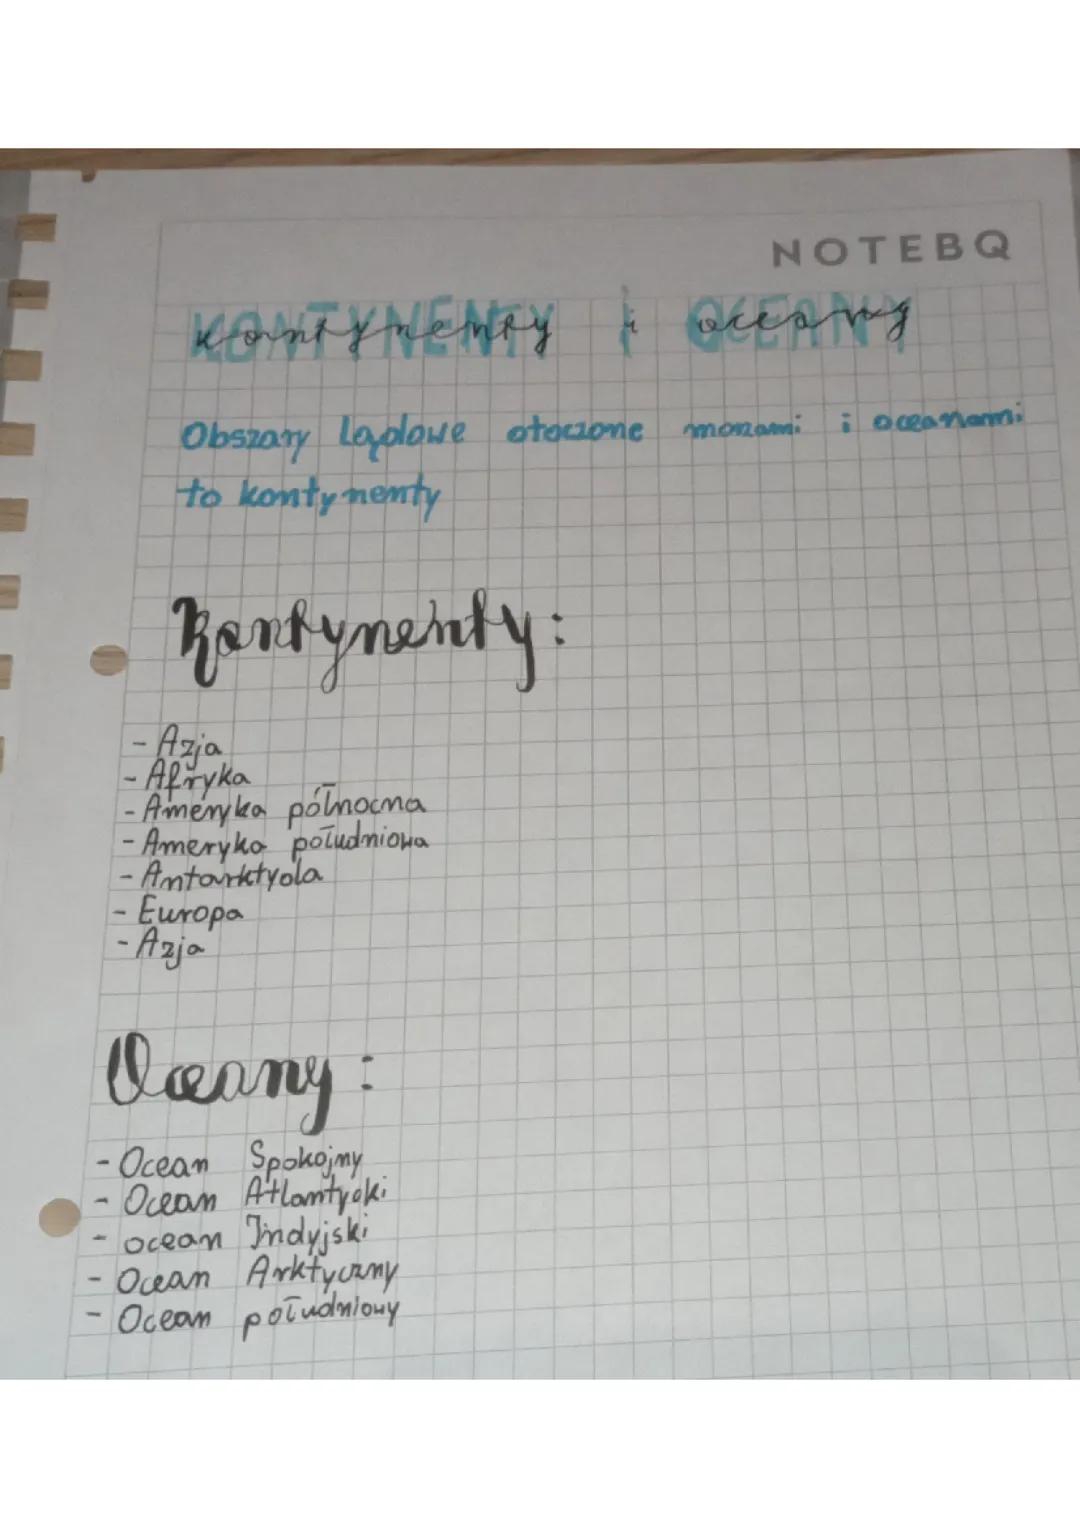 NOTEBQ
KONTYNENTY i OCEANY
kontynenty i oceany
Obszary lądowe otoczone morzami i oceanami
to kontynenty
Kontynenty:
- Azja
- Afryka
- Ameryka północna
- Ameryka południowa
- Antarktyda
- Europa
- Azja
Oceany:
- Ocean Spokojny
- Ocean Atlantycki
- ocean Indyjski
- Ocean Arktyczny
- Ocean południowy